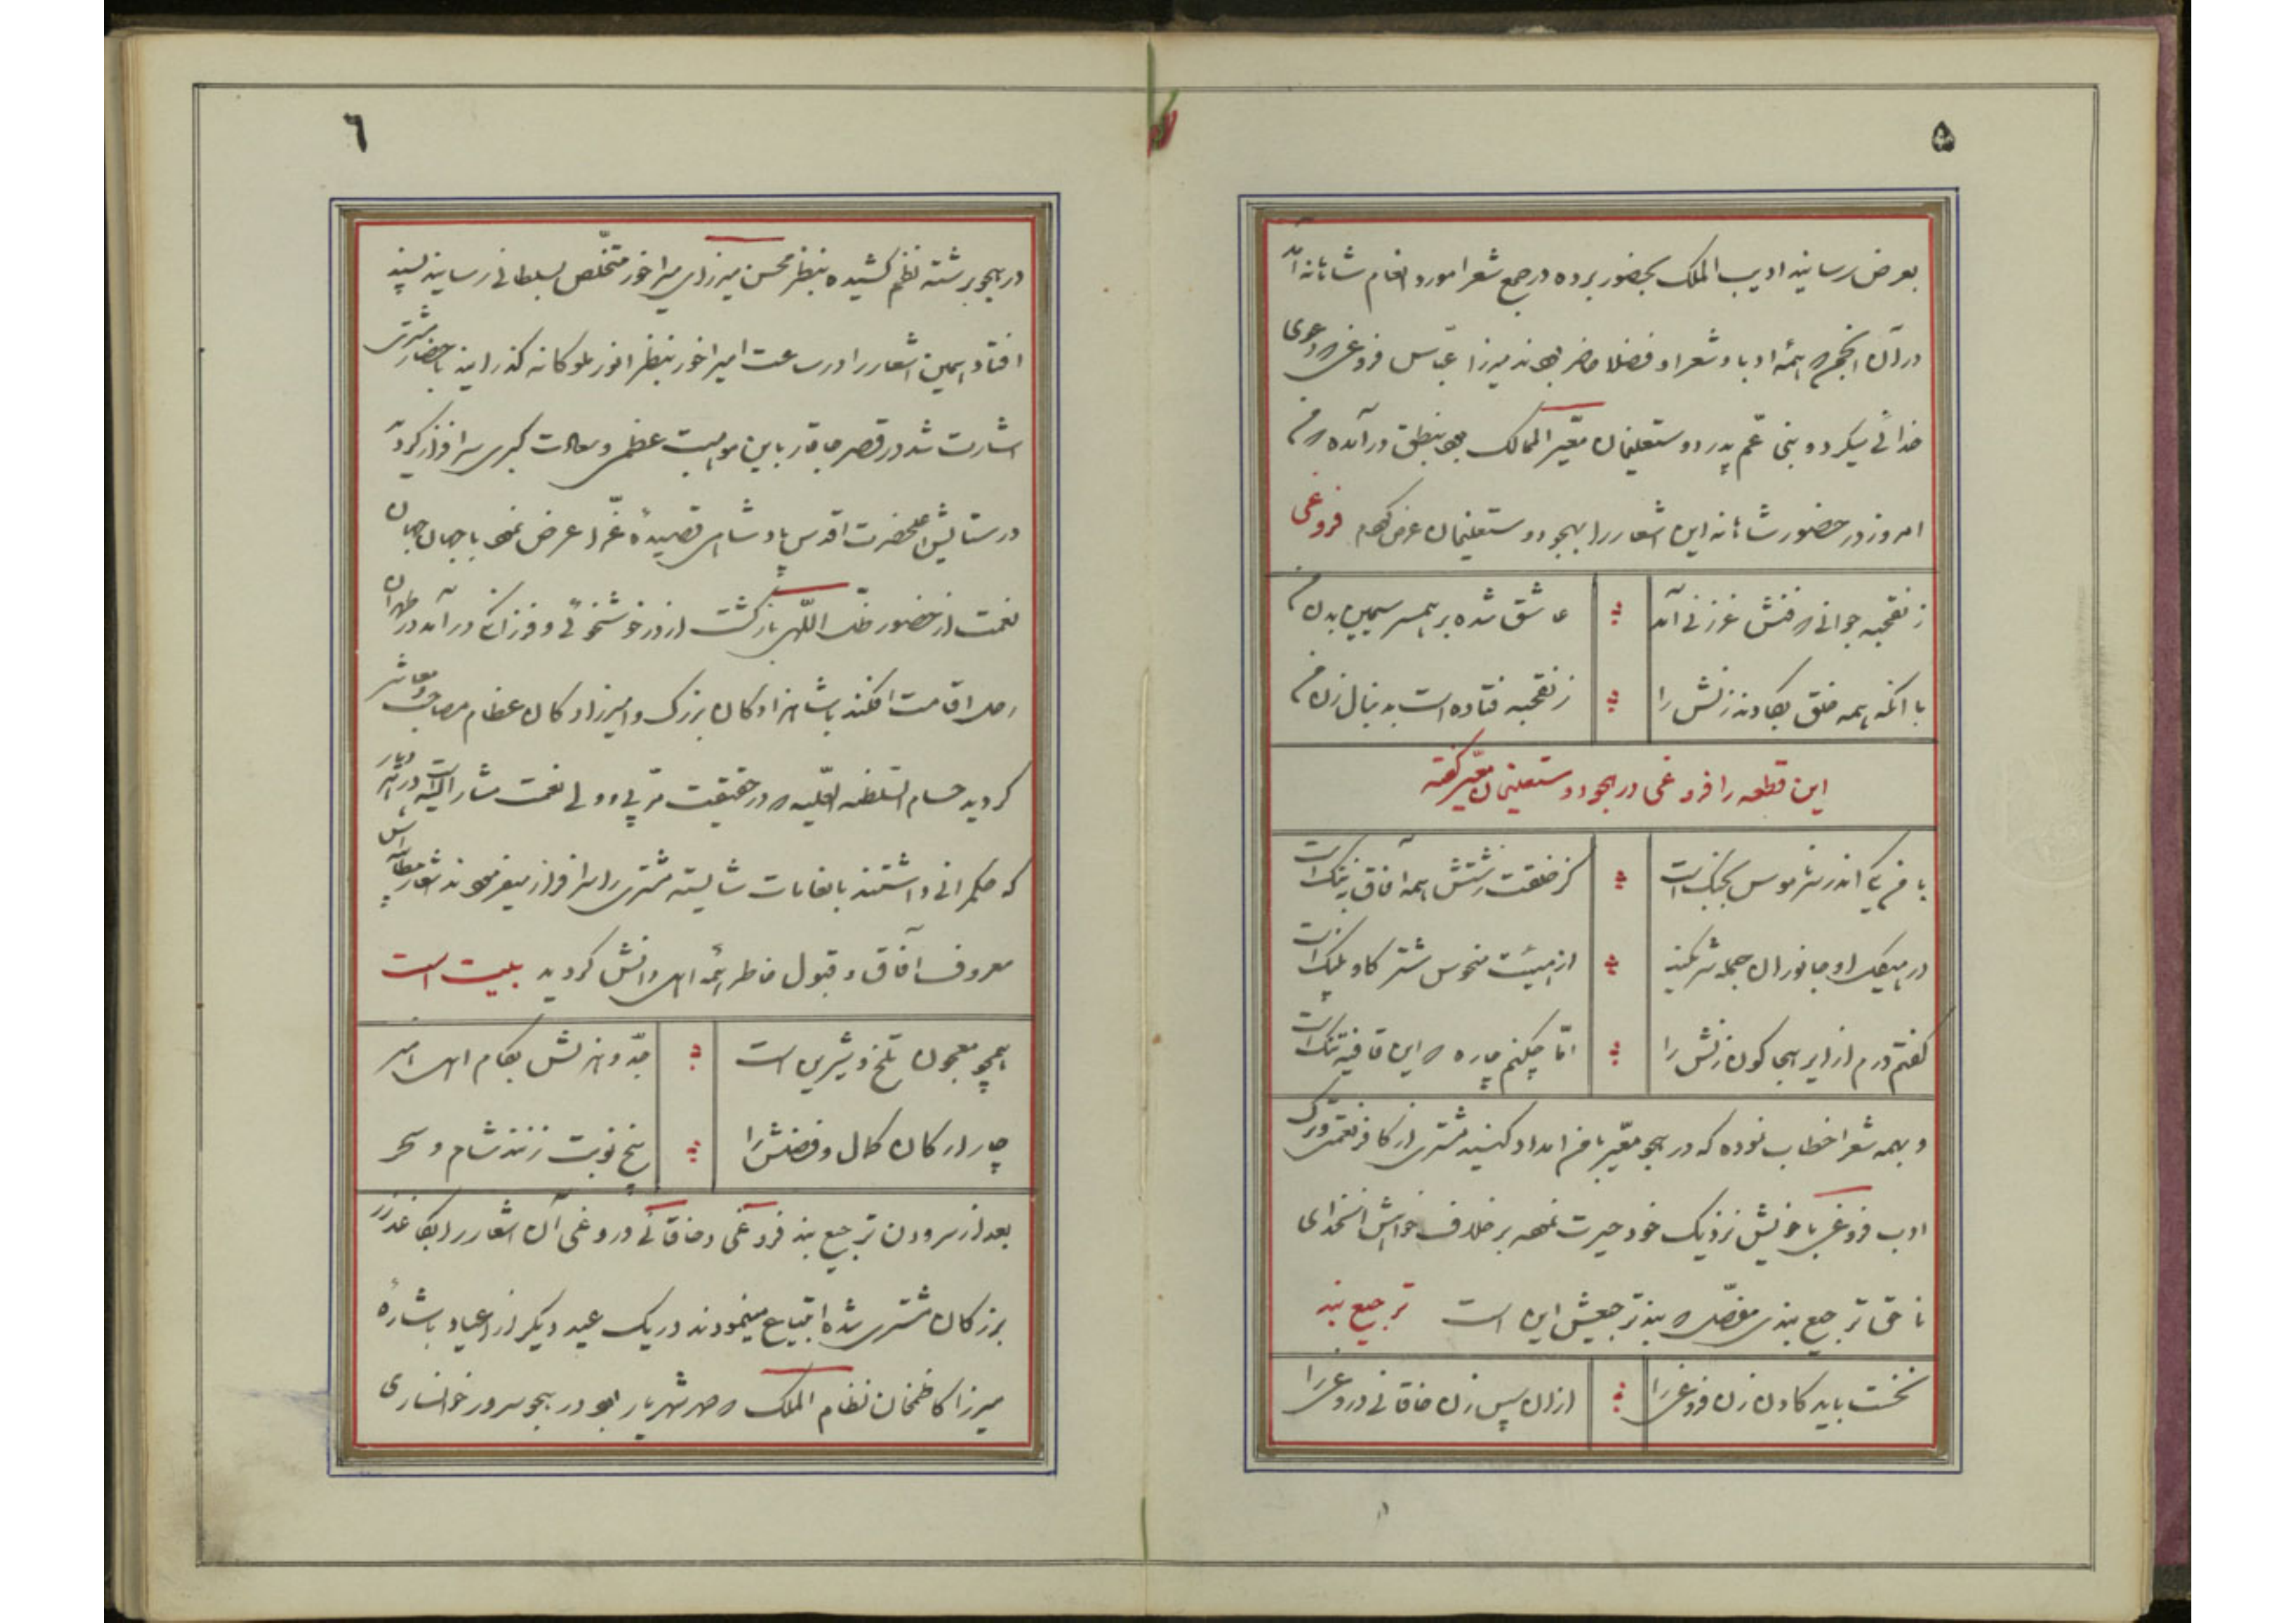 ۵
بعرض رسانید ادیب الملک بحضور برده در جمع شعرا مورد انعام شاهانه آمد
در آن انجمن که همهٔ ادبا و شعرا و فضلا حاضر بودند میرزا عباس فروغی که دعوی
خدائی میکرد و بنی عم پدر دوستعلیخان معیّر الممالک بود بنطق درآمده که من
امروز در حضور شاهانه این اشعار را بهجو دوستعلیخان عرض کرده‌ام فروغی
زنقحبه جوانی که فنش غرزنی آمد
عاشق شده بر همسر سیمین بدن من
با آنکه همه خلق بگادند زنش را
زنقحبه فتاده است بدنبال زن من
این قطعه را فروغی در هجو دوستعلیخان معیّر گفته
با من که اندر سر ناموس بجنگ است
کز خلقت زشتش همه آفاق بتنگ است
در هیکل او جانوران جمله شریکند
از هیئت منحوس شتر گاو پلنگ است
گفتم درم از ایر هجا کون زنش را
امّا چکنم چاره که این قافیه تنگ است
و بهمه شعرا خطاب نموده که در هجو معیّر با من امداد کنید مشتری از کافر نعمتی و ترک
ادب فروغی با خویش نزدیک خود حیرت نموده بر خلاف خواهش آنخدای
ناحق ترجیع بندی مفصّل که بند ترجیعش این است ترجیع بند
نخست باید گادن زن فروغی را
از آن سپس زن خاقانی دروغی را
٦
در هجو برشته نظم کشیده بنظر محسن میرزای میراخور متخلّص بسلطانی رسانید پسند
افتاد همین اشعار را در ساعت امیراخور بنظر انور ملوکانه گذرانید باحضار مشتری
اشارت شد در قصر قاجار باین موهبت عظمی و سعادت کبری سرافراز گردید
در ستایش اعلیحضرت اقدس پادشاهی قصیدهٔ غرّا عرض نمود با جهان جهان
نعمت از حضور ظلّ اللّهی بازگشت از در خوشخوئی و فرزانگی درآمد در طهران
رحل اقامت افکند با شاهزادگان بزرگ و امیرزادگان عظام مصاحب و معاشر
گردید حسام السلطنه العلیه که در حقیقت مربّی و ولی نعمت مشار الیه است در هر دیار
که حکمرانی داشتند بانعامات شایسته مشتری را سرافراز میفرمودند اشعار مطایبه اش
معروف آفاق و قبول خاطر همهٔ اهل دانش گردید بلیت است
همچو معجون تلخ و شیرین است
جدّ و هزلش بکام اهل هنر
چار ارکان کمال و فضلش را
پنج نوبت زنند شام و سحر
بعد از سرودن ترجیع بند فروغی و خاقانی دروغی آن اشعار را بکاغذ زر
بزرگان مشتری شده ابتیاع مینمودند در یک عید دیگر از اعیاد باشارهٔ
میرزا کاظمخان نظام الملک که صهر شهریار بود در هجو سرور خوانساری